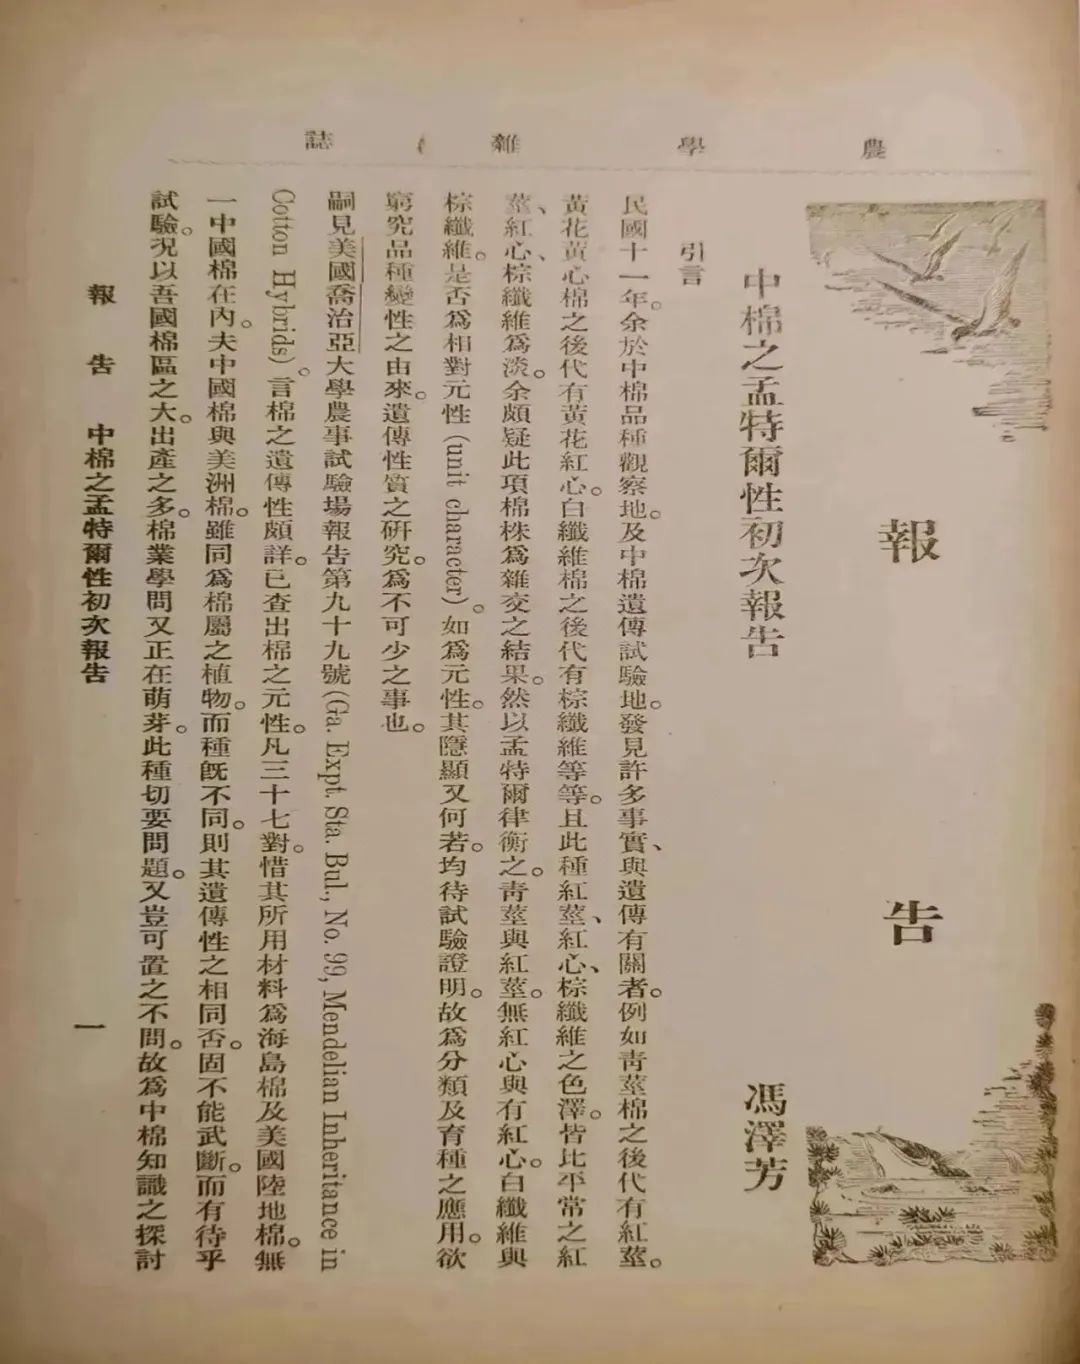 農學雜誌
報告
中棉之孟特爾性初次報告 馮澤芳
引言
民國十一年。余於中棉品種觀察地。及中棉遺傳試驗地。發見許多事實、與遺傳有關者。例如靑莖棉之後代有紅莖。
黃花黃心棉之後代有黃花紅心。白纖維棉之後代有棕纖維等等。且此種紅莖、紅心、棕纖維之色澤。皆比平常之紅
莖、紅心、棕纖維爲淡。余頗疑此項棉株爲雜交之結果。然以孟特爾律衡之。靑莖與紅莖。無紅心與有紅心。白纖維與
棕纖維。是否爲相對元性(unit character)。如爲元性。其隱顯又何若。均待試驗證明。故爲分類及育種之應用。欲
窮究品種變性之由來。遺傳性質之研究。爲不可少之事也。
嗣見美國喬治亞大學農事試驗場報告第九十九號(Ga. Expt. Sta. Bul., No. 99, Mendelian Inheritance in
Cotton Hybrids)。言棉之遺傳性頗詳。已查出棉之元性。凡三十七對。惜其所用材料爲海島棉及美國陸地棉。無
一中國棉在內。夫中國棉與美洲棉。雖同爲棉屬之植物。而種旣不同。則其遺傳性之相同否。固不能武斷。而有待乎
試驗。況以吾國棉區之大。出產之多。棉業學問又正在萌芽。此種切要問題。又豈可置之不問。故爲中棉知識之探討
報告 中棉之孟特爾性初次報告 一